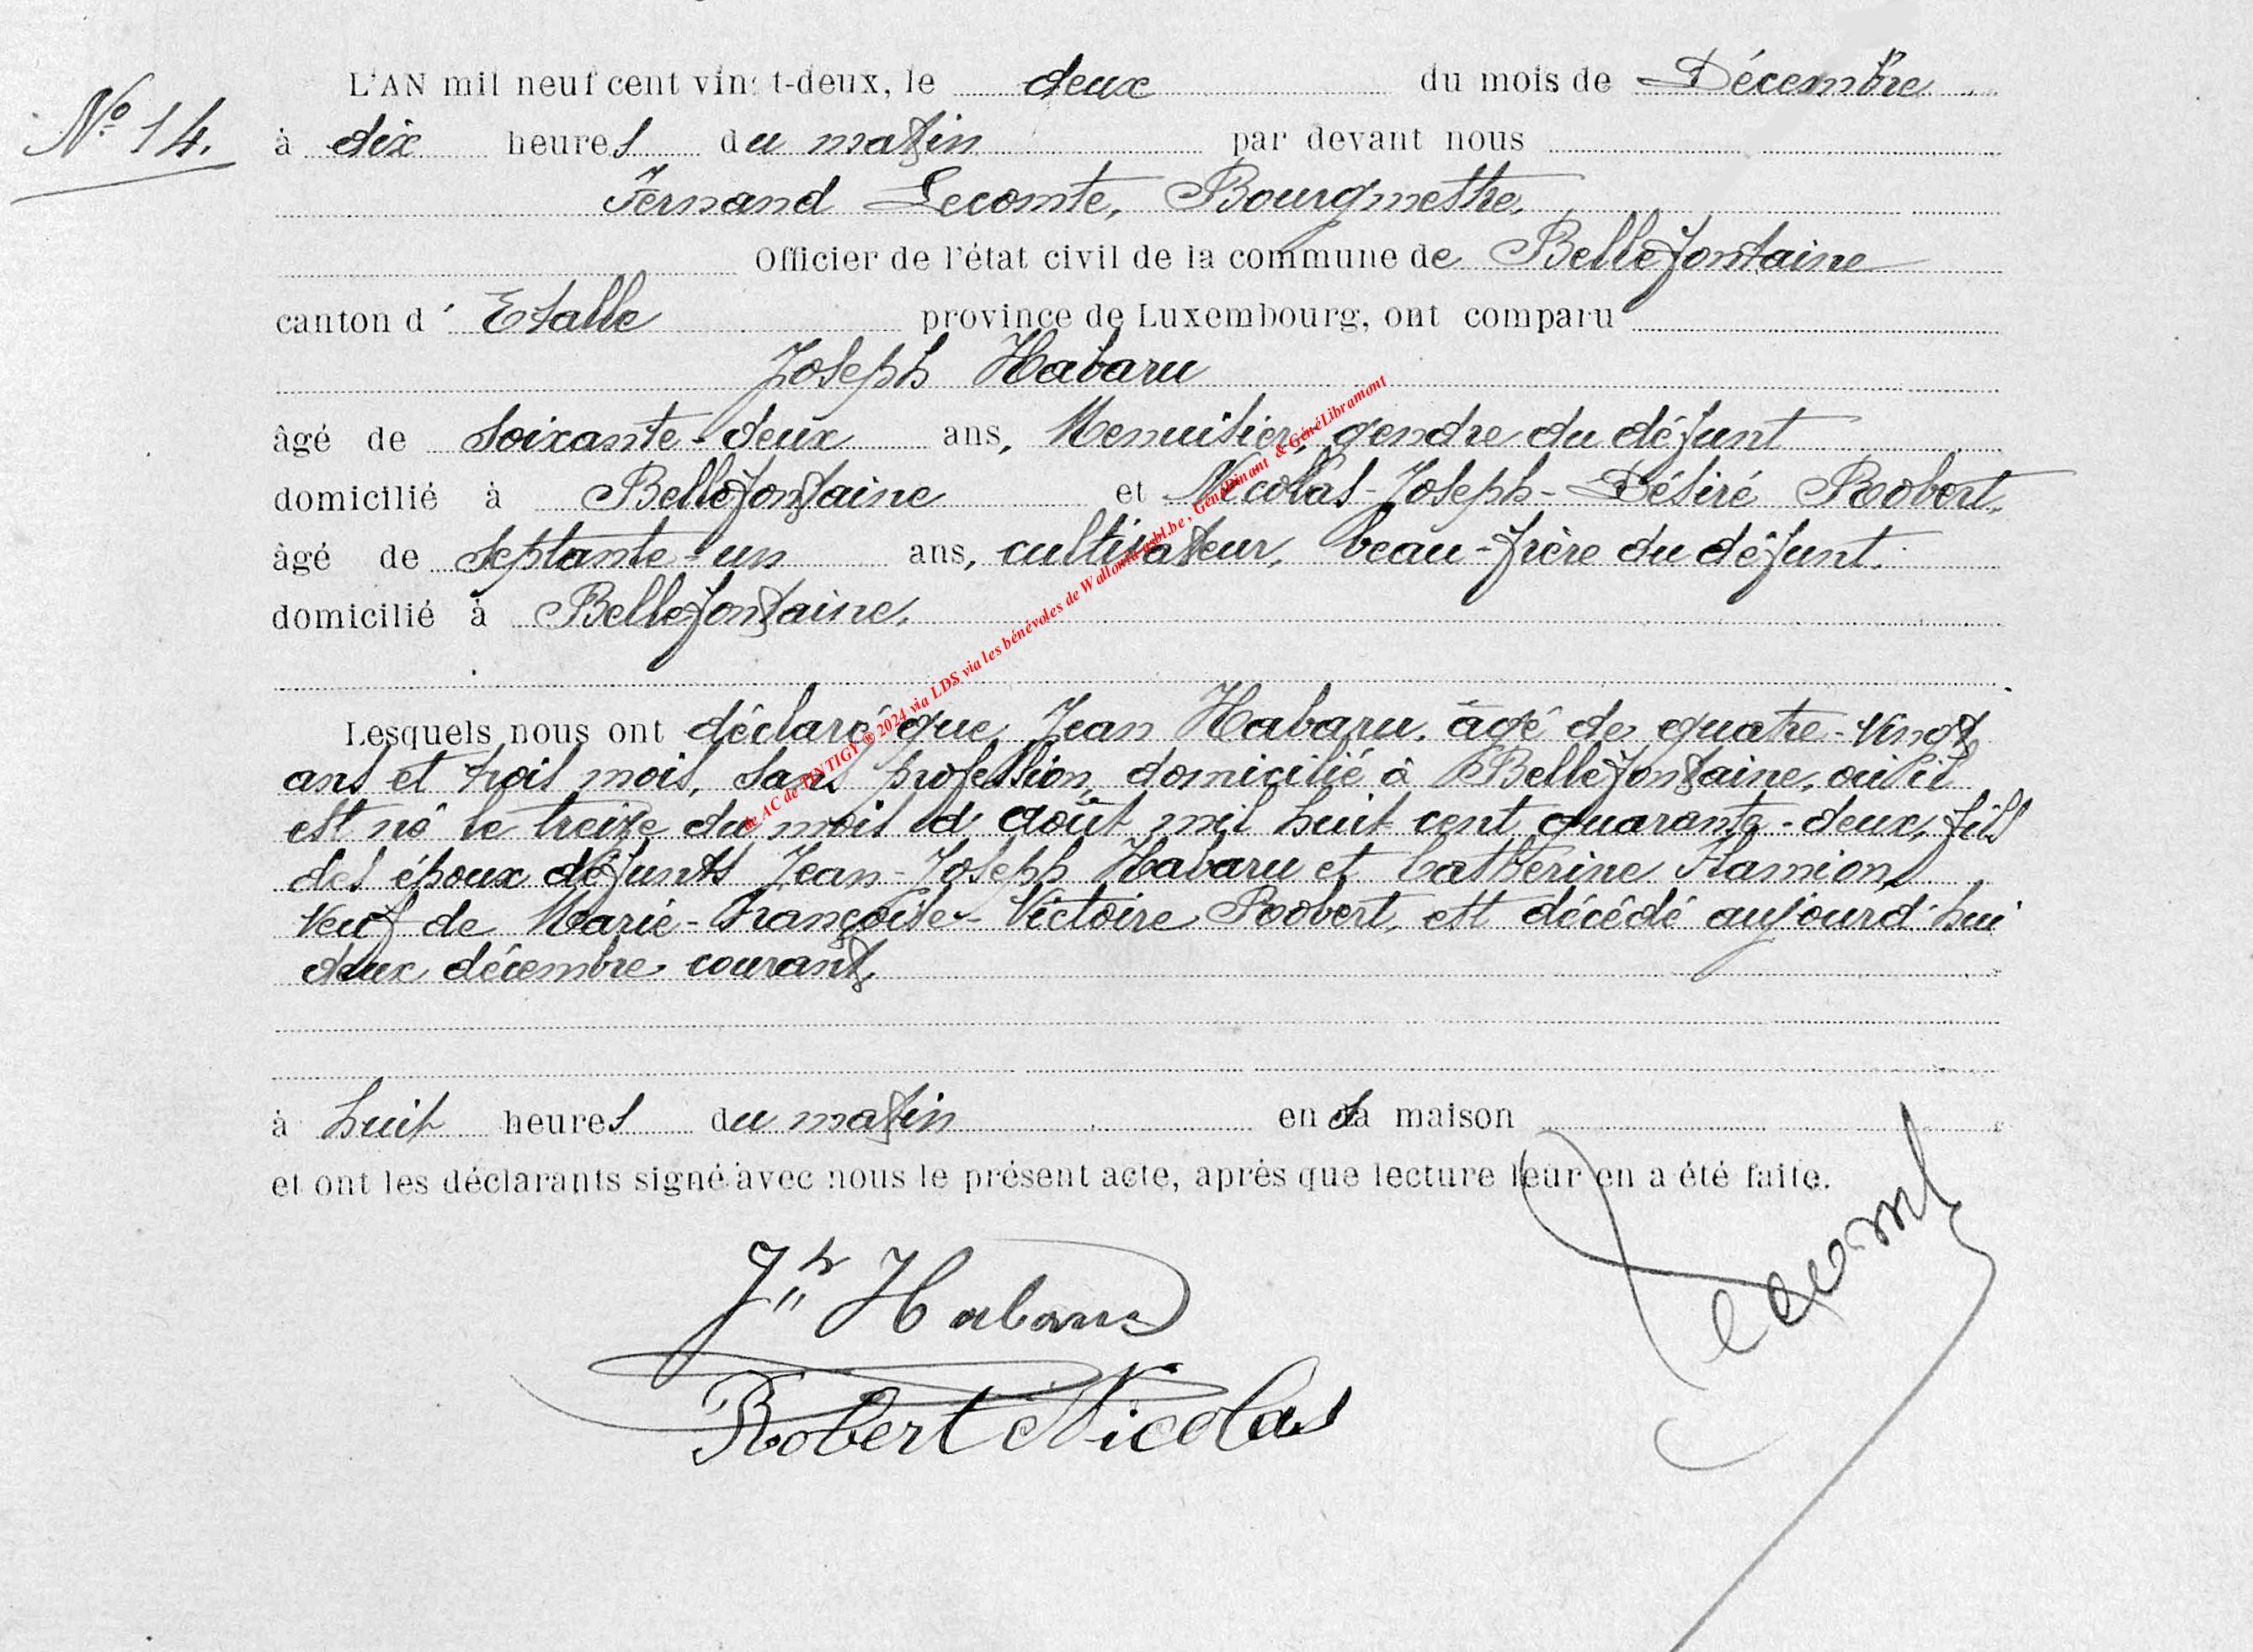 N° 14.
L'AN mil neuf cent vingt-deux, le deux du mois de Décembre
à dix heures du matin par devant nous
Fernand Lecomte, Bourgmestre,
Officier de l'état civil de la commune de Bellefontaine
canton d'Etalle province de Luxembourg, ont comparu
Joseph Habaru
âgé de soixante-deux ans, Menuisier, gendre du défunt
domicilié à Bellefontaine et Nicolas-Joseph-Désiré Robert,
âgé de septante-un ans, cultivateur, beau-frère du défunt.
domicilié à Bellefontaine.
Lesquels nous ont déclaré que Jean Habaru, âgé de quatre-vingt
ans et trois mois, sans profession, domicilié à Bellefontaine, où il
est né le treize du mois d'août mil huit cent quarante-deux, fils
des époux défunts Jean-Joseph Habaru et Catherine Hamion,
veuf de Marie-Françoise-Victoire Robert, est décédé aujourd'hui
deux décembre courant,
à huit heures du matin en sa maison
et ont les déclarants signé avec nous le présent acte, après que lecture leur en a été faite.
Jh Habaru
Robert Nicolas
Lecomte
de AC de TINTIGY ® 2024 via LDS via les bénévoles de Wallonia-asbl.be, GénéDinant & GénéLibramont